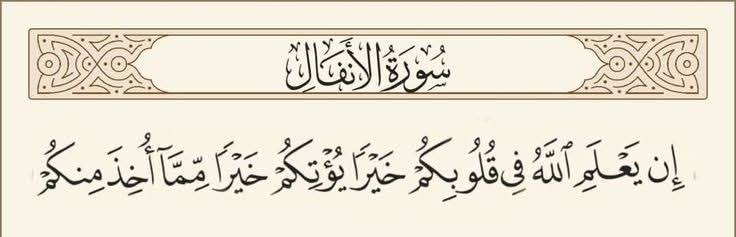 سُورَةُ الأَنفَالِ
إِن يَعْلَمِ ٱللَّهُ فِى قُلُوبِكُمْ خَيْرًا يُؤْتِكُمْ خَيْرًا مِّمَّآ أُخِذَ مِنكُمْ